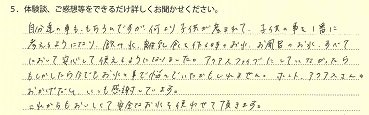 5．体験談、ご感想等をできるだけ詳しくお聞かせください。
自分達の事も、もちろんですが何より子供が産まれて、子供の事を1番に
考えるようになり、飲み水、離乳食を作る時のお水、お風呂のお水、すべて
において安心して使えるようになりました。アクアスファイブにしていなかったら
もしかしたら今でもお水の事で悩んでいたかもしれません。ホント、アクアスさんの
おかげだなぁ、いつも感謝しています。
これからもおいしくて安全なお水を使わせて頂きます。